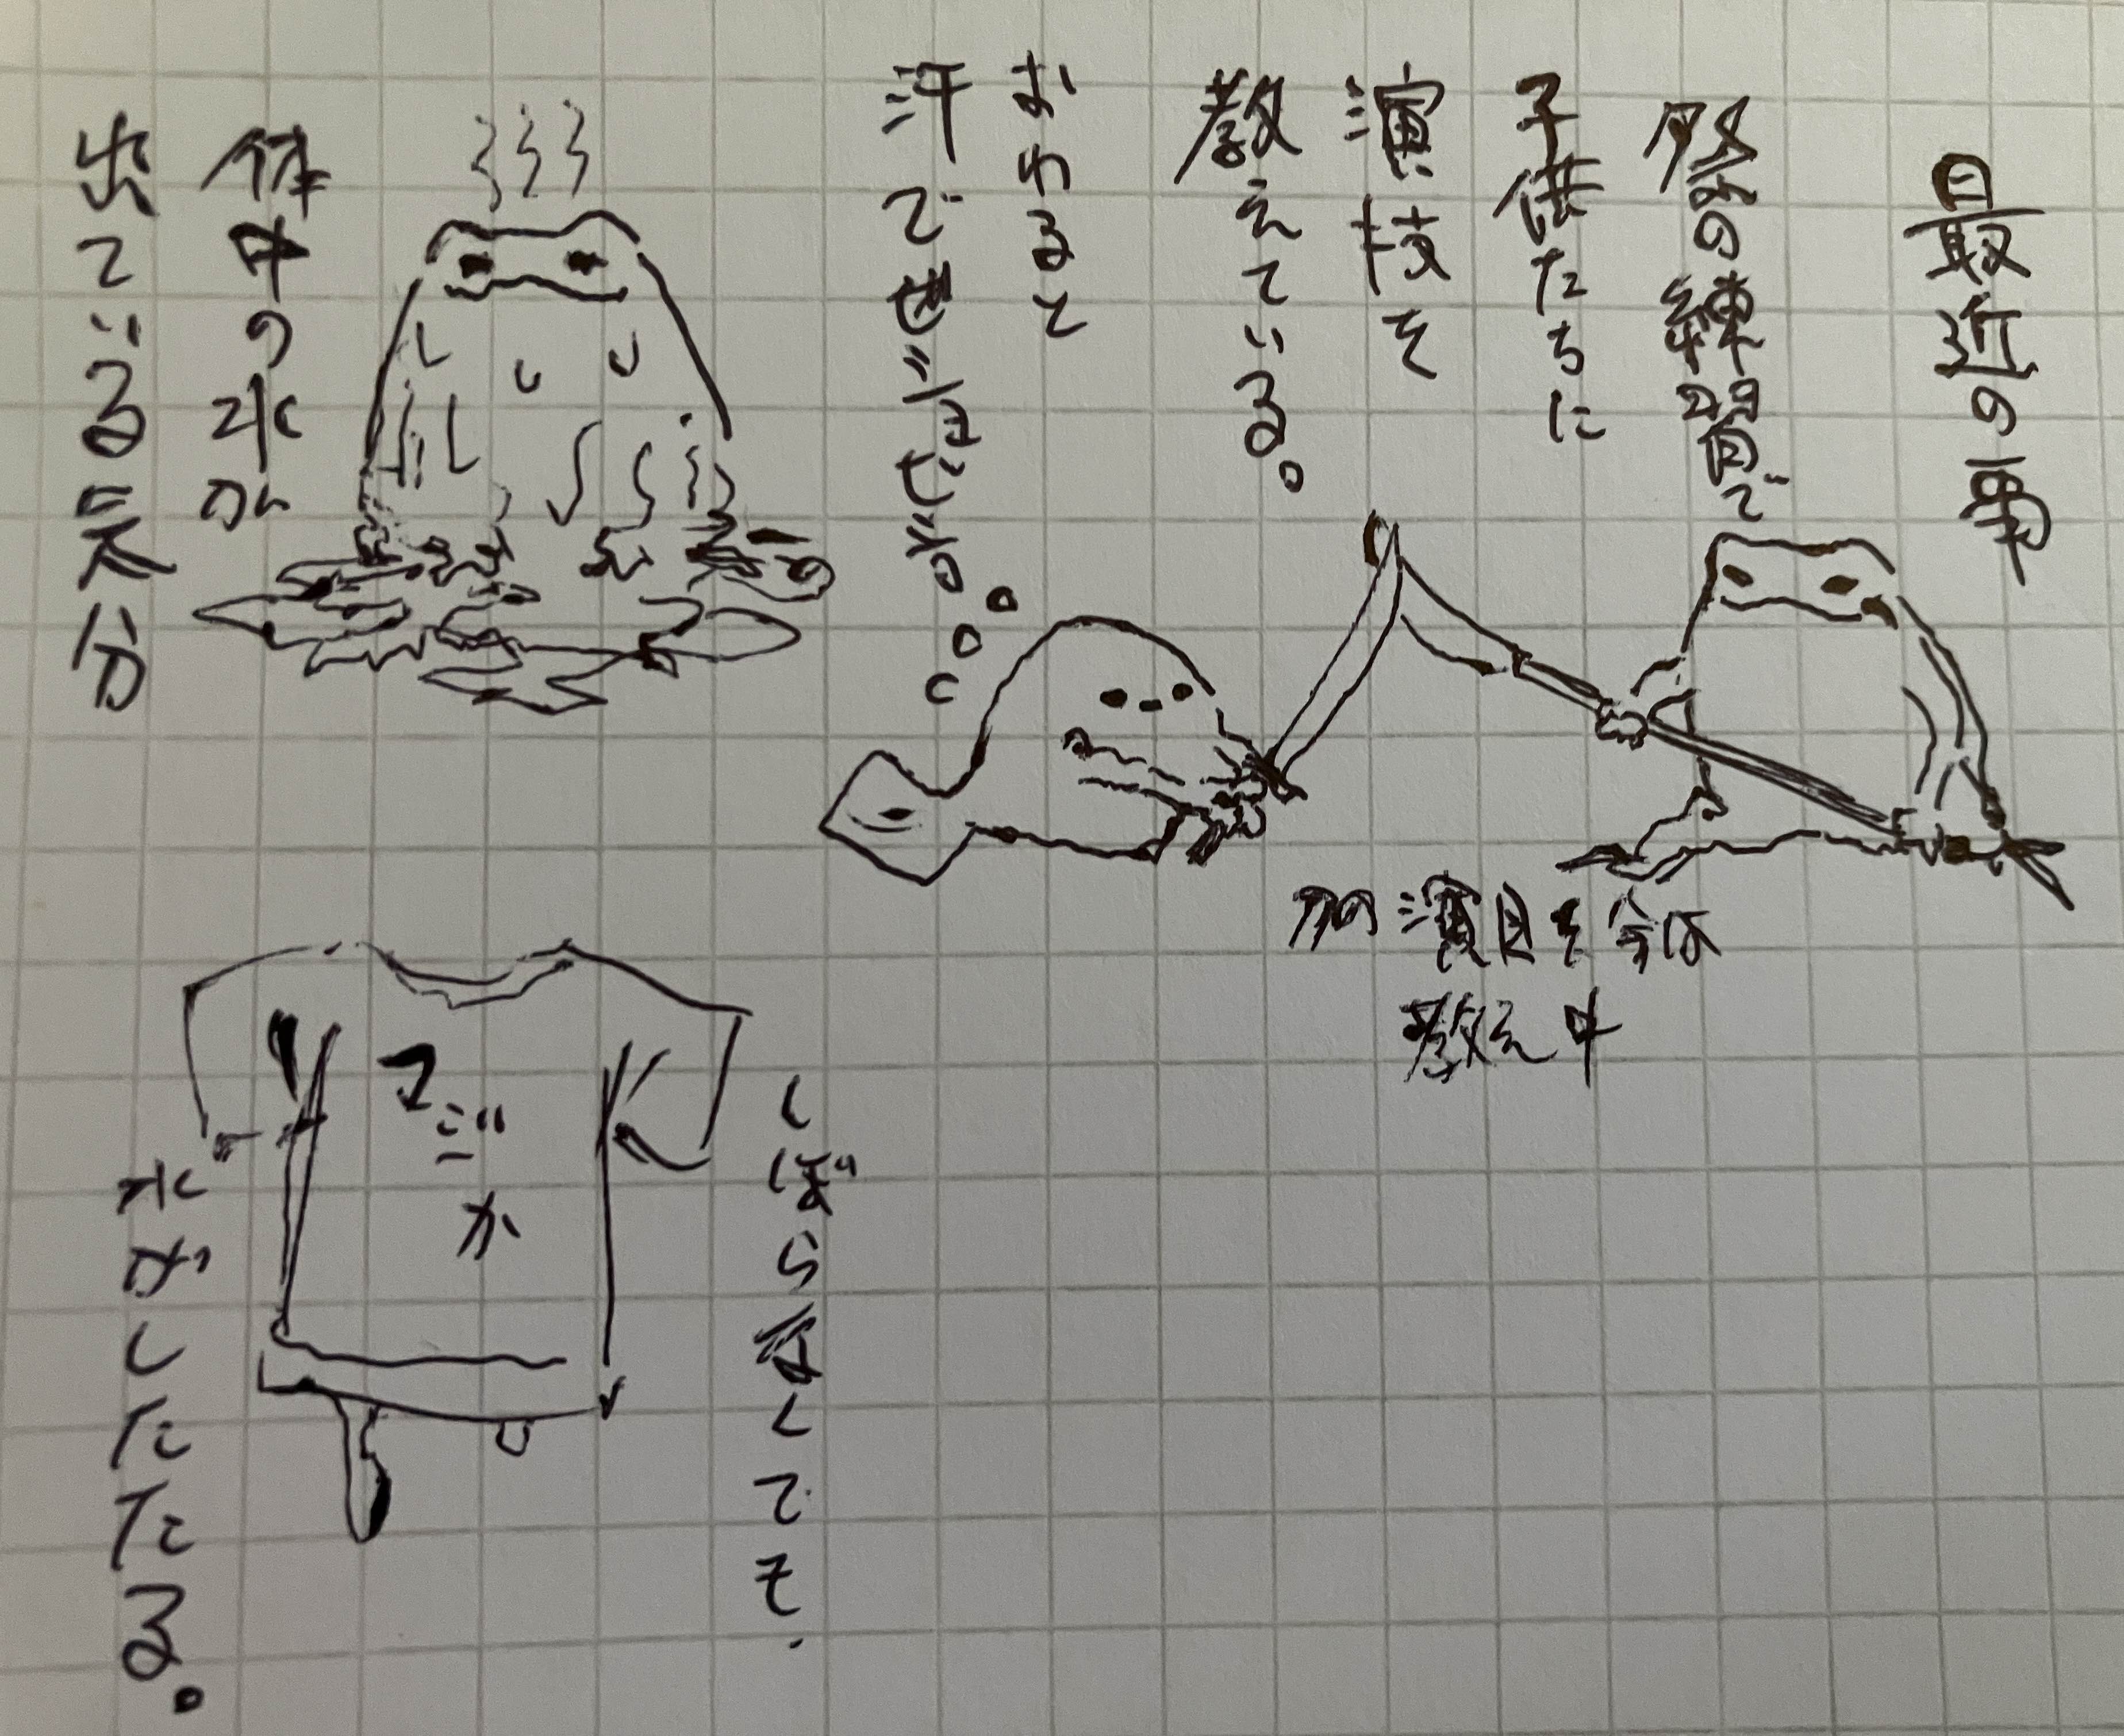 最近の事
祭の練習で
子供たちに
演技を
教えている。
おわると
汗でぜんぜだが
体中の水が
出ている気分
別の演目を今は
教え中
しぼらなくても、
マジか
水がしたたる。